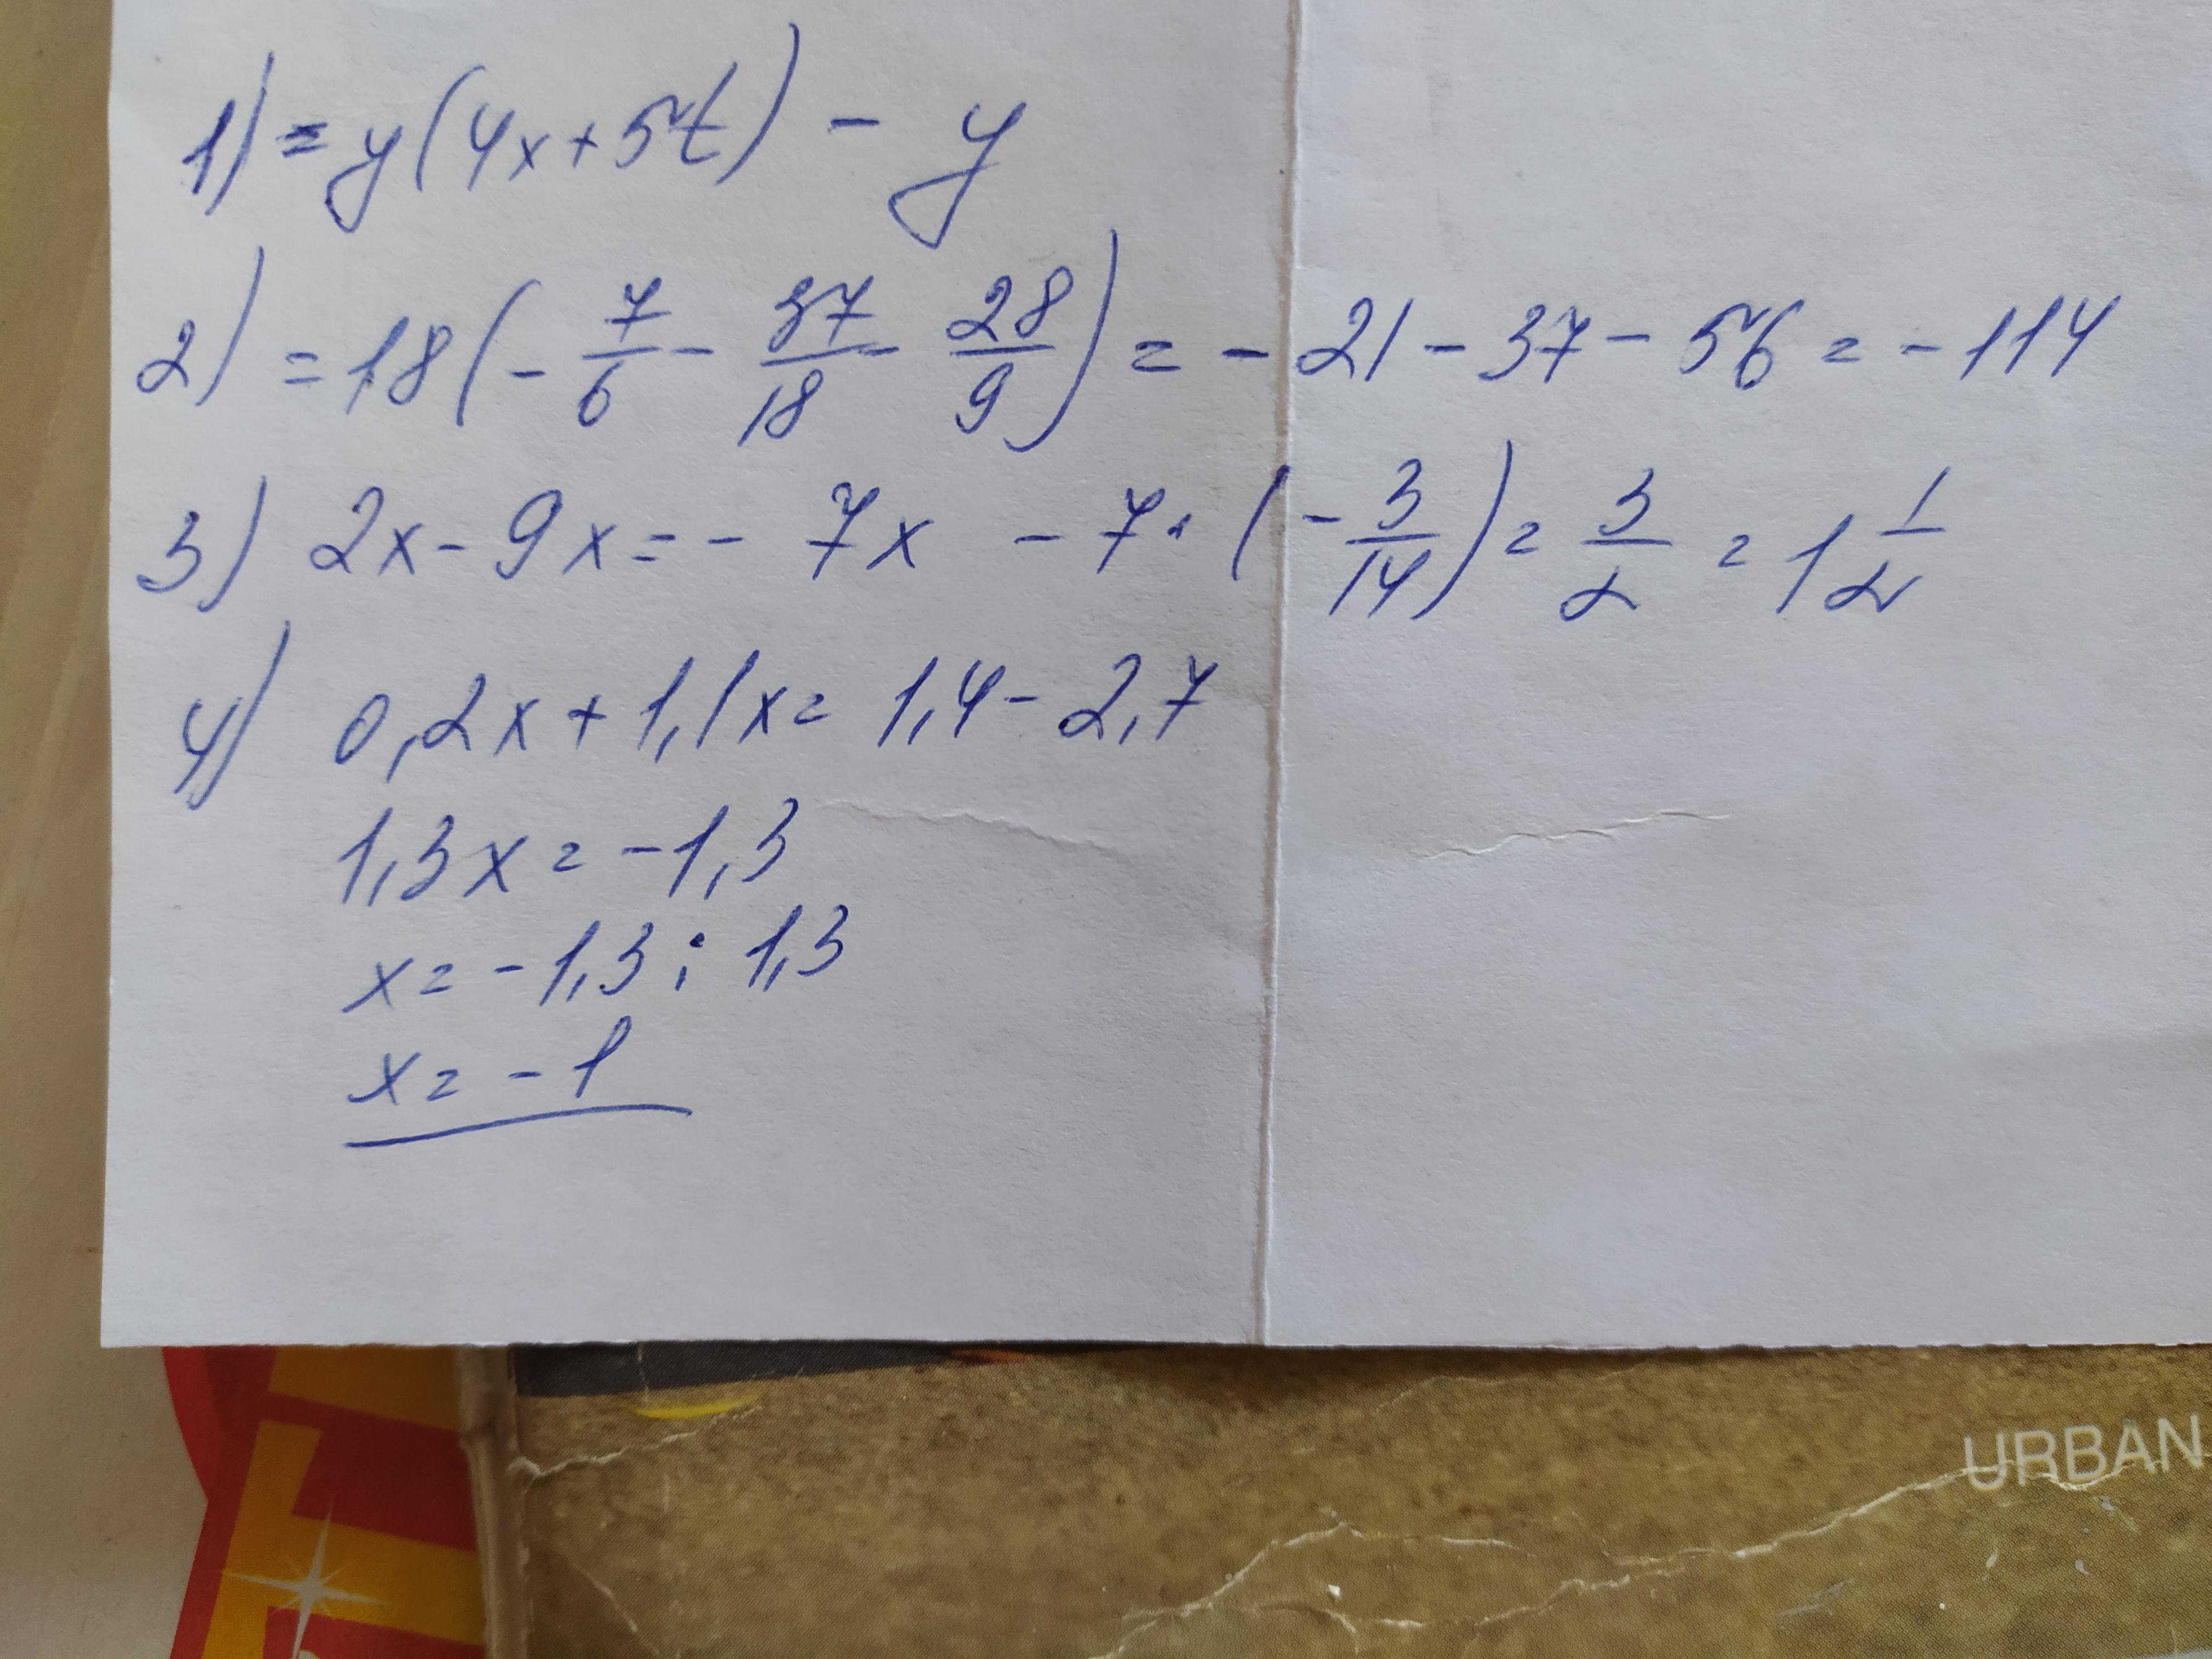 1) = y(4x+5t) - y
2) = 18(-7/6 - 37/18 - 28/9) = -21-37-56 = -114
3) 2x-9x = -7x -7·(-3/14) = 3/2 = 1 1/2
4) 0,2x+1,1x = 1,4-2,7
1,3x = -1,3
x = -1,3 : 1,3
x = -1
URBAN